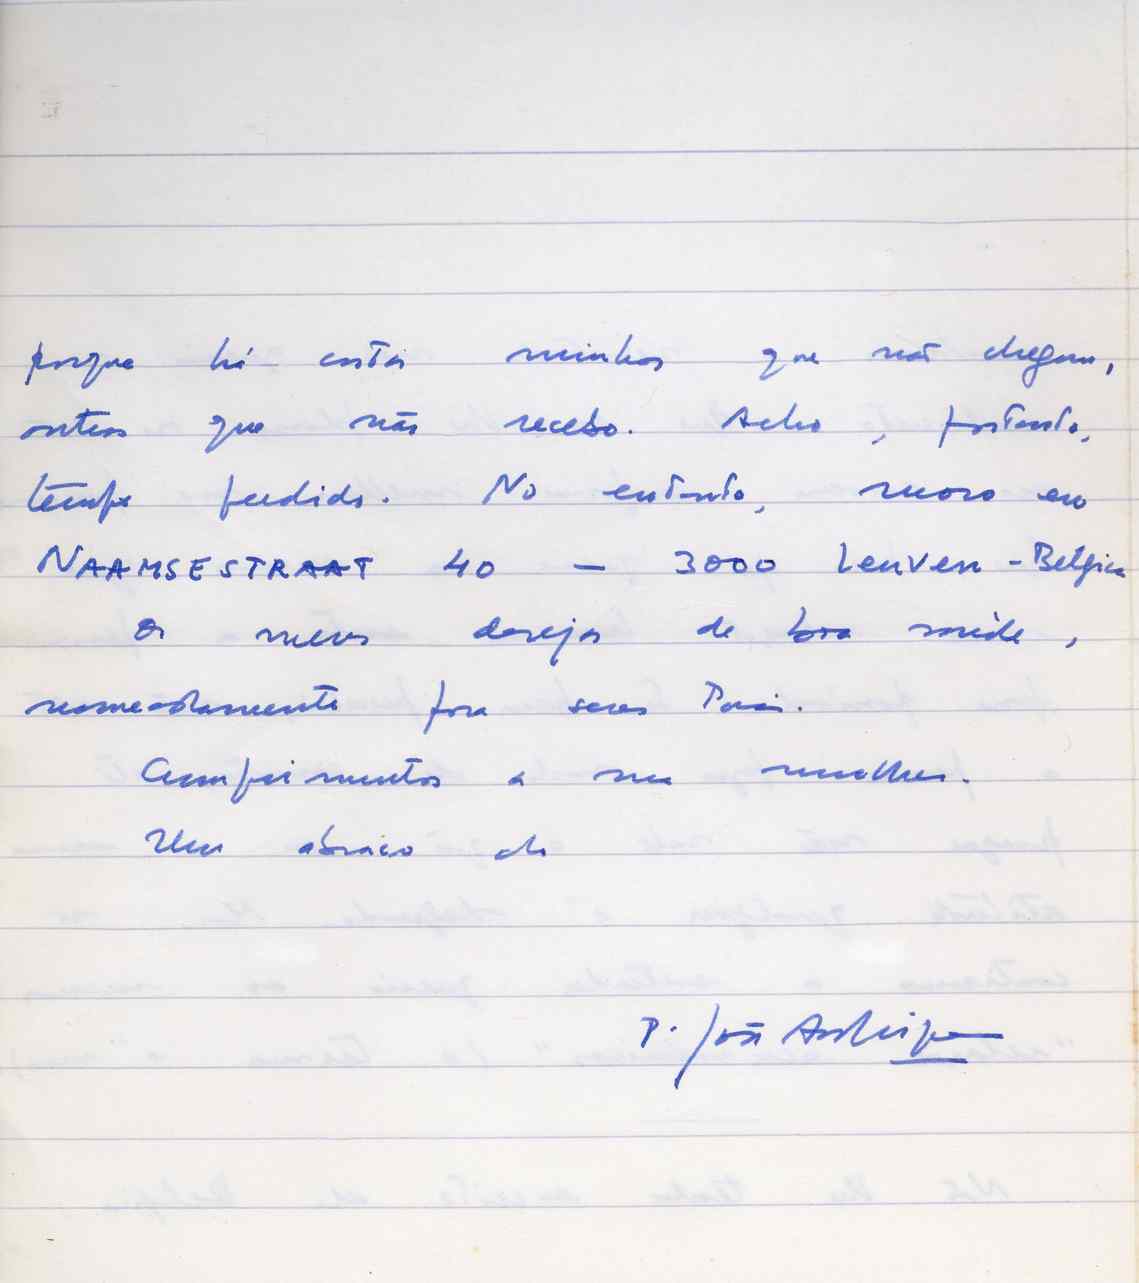 porque há cartas minhas que não chegam,
outras que não recebo. Acho, portanto,
tempo perdido. No entanto, moro em
NAAMSESTRAAT 40 – 3000 Leuven - Belgica
Os meus desejos de boa saúde,
nomeadamente para seus Pais.
Cumprimentos a sua mulher.
Um abraço de
P. João